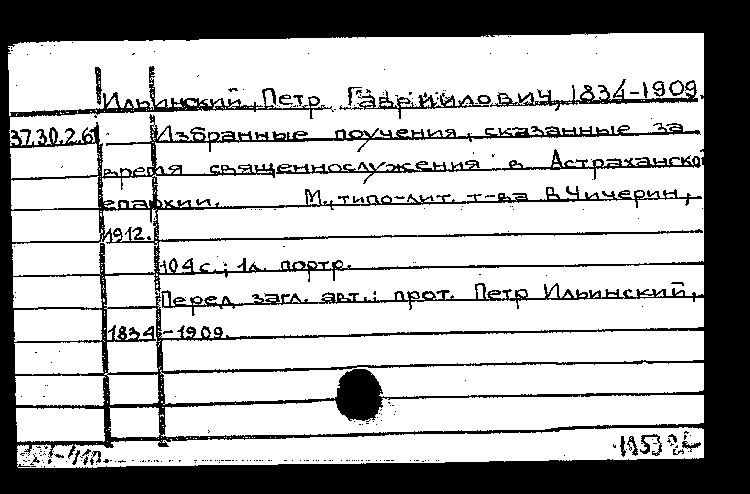 Ильинский, Петр Гавриилович, 1834-1909.
37.30.2.61. Избранные поучения, сказанные за
время священнослужения в Астраханской
епархии. М., типо-лит. т-ва В.Чичерин,
1912.
104 с.; 1 л. портр.
Перед загл. авт.: прот. Петр Ильинский,
1834-1909.